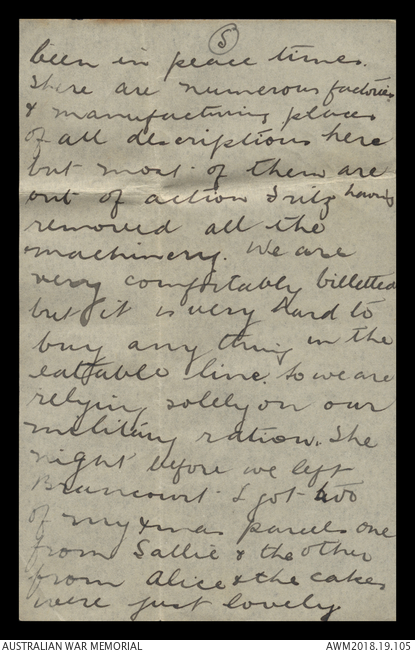 5
been in peace times.
There are numerous factories
& manufacturing places
of all descriptions here
but most of them are
out of action Fritz having
removed all the
machinery. We are
very comfortably billetted
but it is very hard to
buy any thing in the
eattable line. So we are
relying solely on our
military ration. The
night before we left
Brancourt I got two
of my xmas parcels one
from Sallie & the other
from Alice & the cakes
were just lovely
AUSTRALIAN WAR MEMORIAL AWM2018.19.105